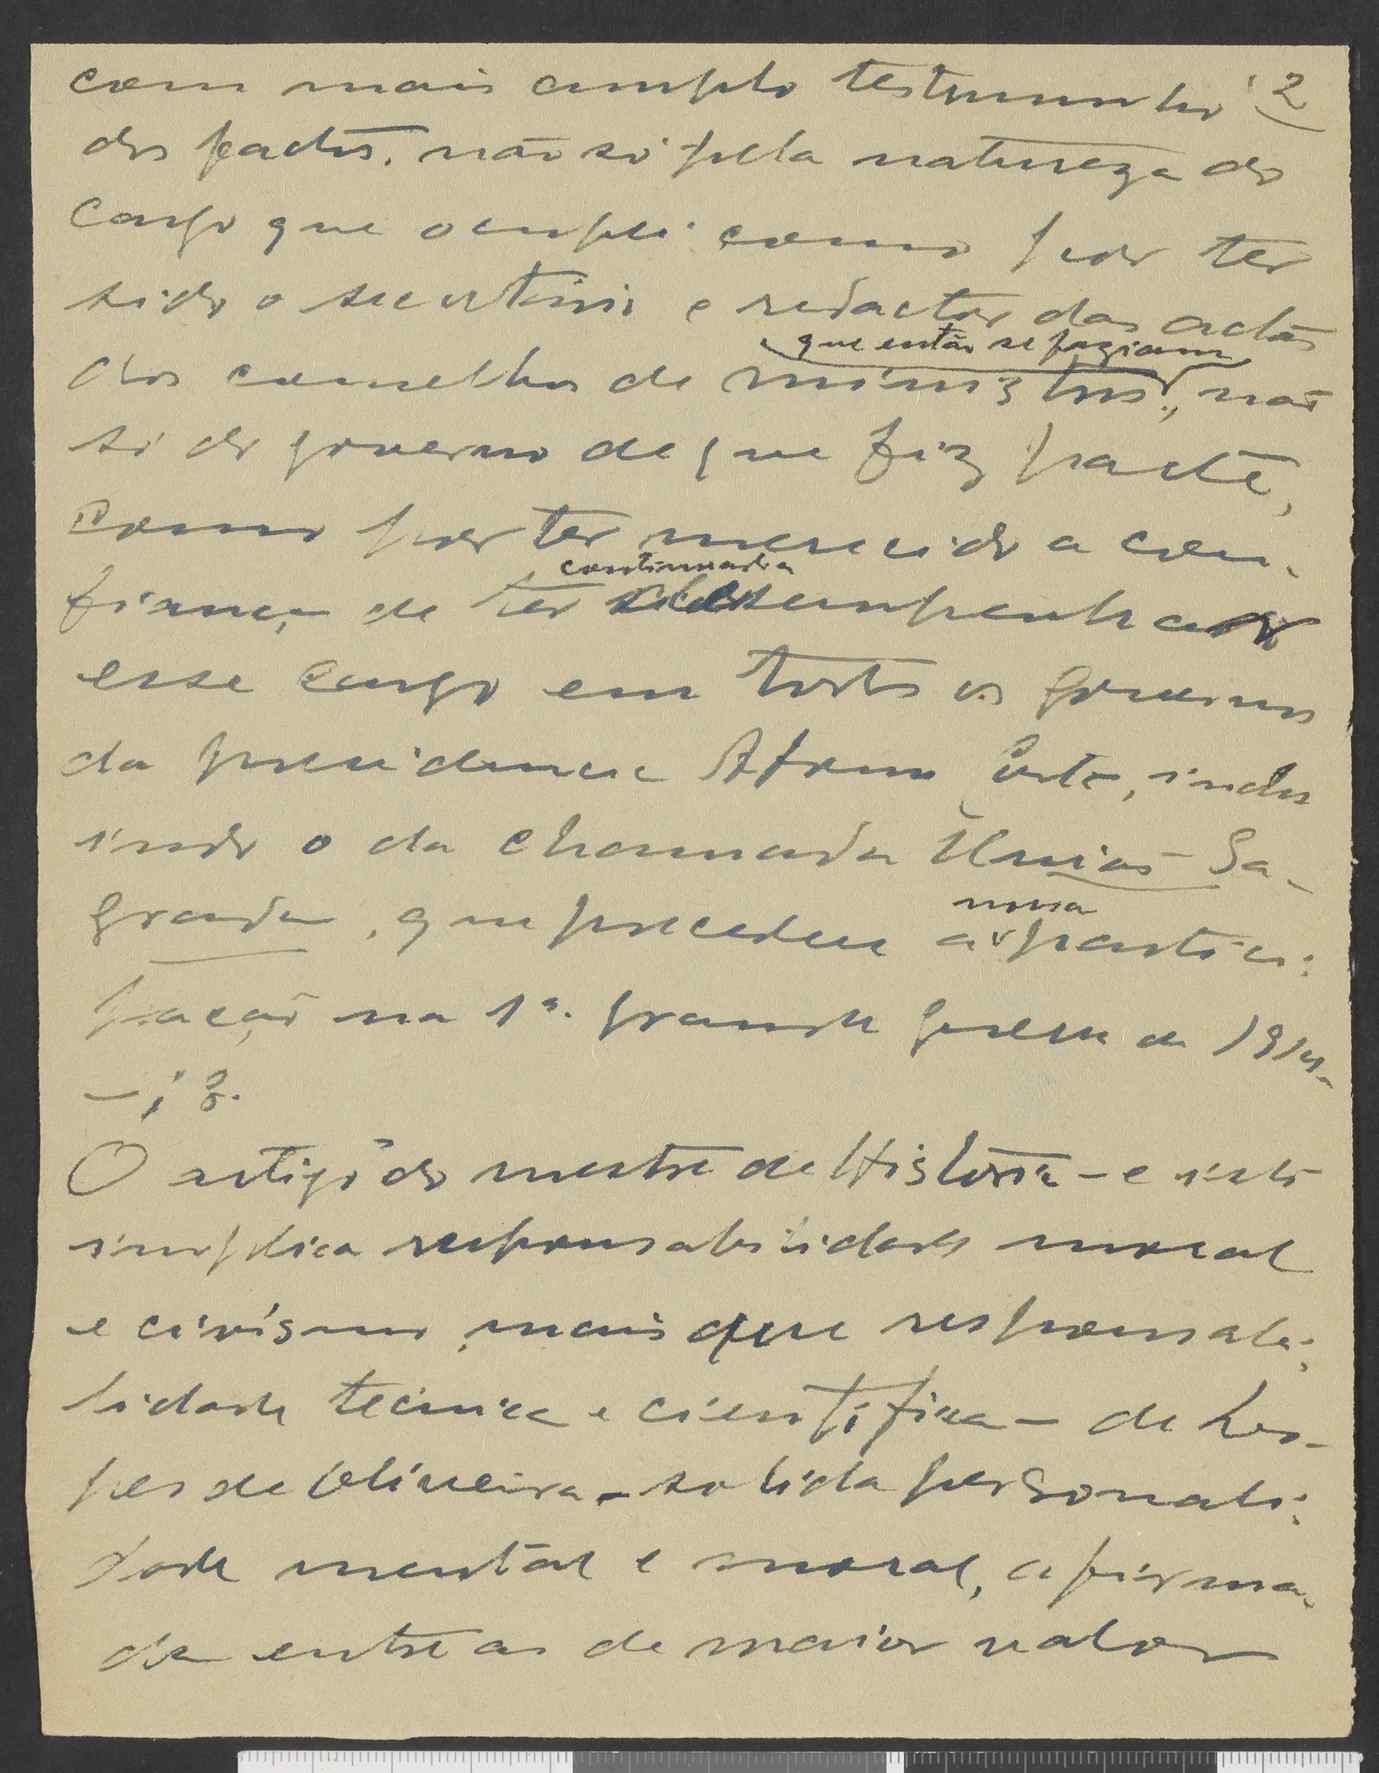 com mais amplo testemunho 2
dos factos. não só pela natureza do
cargo que ocupei como por ter
sido o secretário e redactor das actas
que então se faziam
dos conselhos de ministros, não
só do governo de que fiz parte,
como por ter merecido a con-
continuada
fiança de ter desempenhado
esse cargo em todos os governos
da presidencia Afonso Costa, inclu
indo o da chamada União Sa-
grada, que precedeu a
nossa
partici-
pação na 1ª. grande guerra de 1914-
-18.
O artigo do mestre de História - e isto
implica responsabilidade moral
e civismo, mais que responsabi-
lidade técnica e científica - de Lo-
pes de Oliveira - solida personali-
dade mental e moral, afirma-
da entre as de maior valor